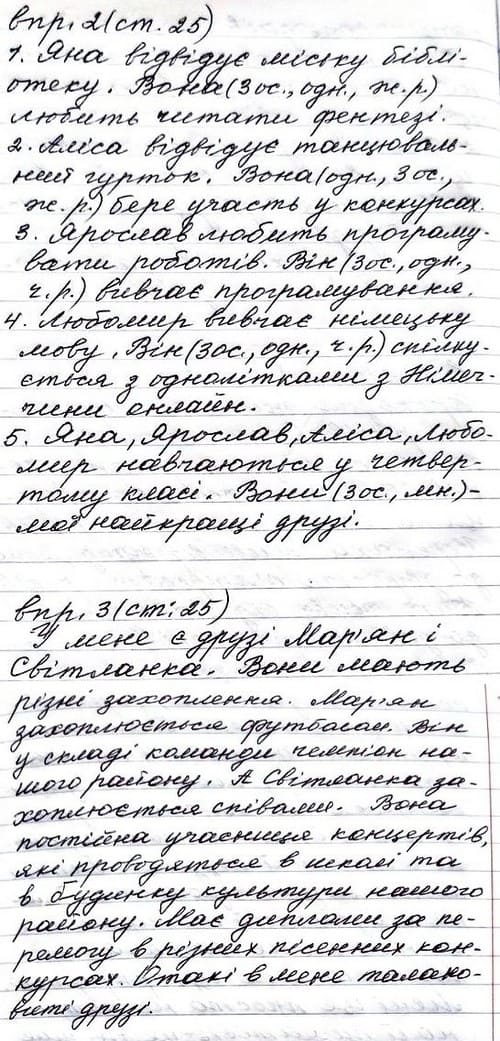 впр. 2 (ст. 25)
1. Яна відвідує міську біблі-
отеку. Вона (3 ос., одн., ж. р.)
любить читати фентезі.
2. Аліса відвідує танцюваль-
ний гурток. Вона (одн., 3 ос.,
ж. р.) бере участь у конкурсах.
3. Ярослав любить програму-
вати роботів. Він (3 ос., одн.,
ч. р.) вивчає програмування.
4. Любомир вивчає німецьку
мову. Він (3 ос., одн., ч. р.) спілку-
ється з однолітками з Німеч-
чини онлайн.
5. Яна, Ярослав, Аліса, Любо-
мир навчаються у четвер-
тому класі. Вони (3 ос., мн.) -
мої найкращі друзі.
впр. 3 (ст. 25)
У мене є друзі Мар'ян і
Світланка. Вони мають
різні захоплення. Мар'ян
захоплюється футболом. Він
у складі команди чемпіон на-
шого району. А Світланка за-
хоплюється співами. Вона
постійна учасниця концертів,
які проводяться в школі та
в будинку культури нашого
району. Має дипломи за пе-
ремогу в різних пісенних кон-
курсах. Отакі в мене талано-
виті друзі.